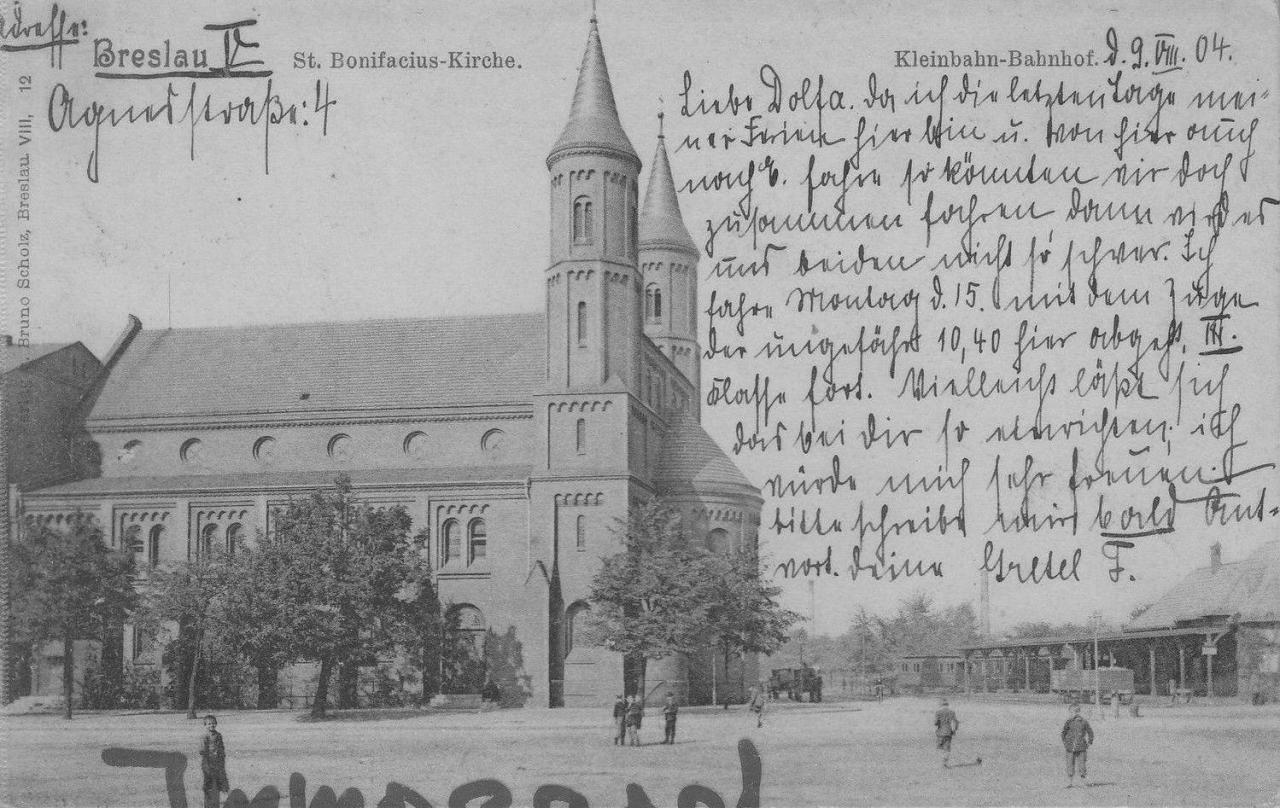 Adresse:
Breslau IX
St. Bonifacius-Kirche.
Kleinbahn-Bahnhof. d. 9. VIII. 04.
Agnesstraße: 4
Bruno Scholz, Breslau VIII, 12
Liebe Dolfa. da ich die letzten Tage mei-
ner Ferien hier bin u. von hier auch
nach fahre so könnten wir doch
zusammen fahren dann wird es
uns beiden nicht so schwer. Ich
fahre Montag d. 15. mit dem Zuge
der ungefähr 10,40 hier abgeht, III.
Klasse fort. Vielleicht läßt sich
das bei dir so einrichten; ich
würde mich sehr freuen.
bitte schreibe mir bald Ant-
wort. deine Gretel F.